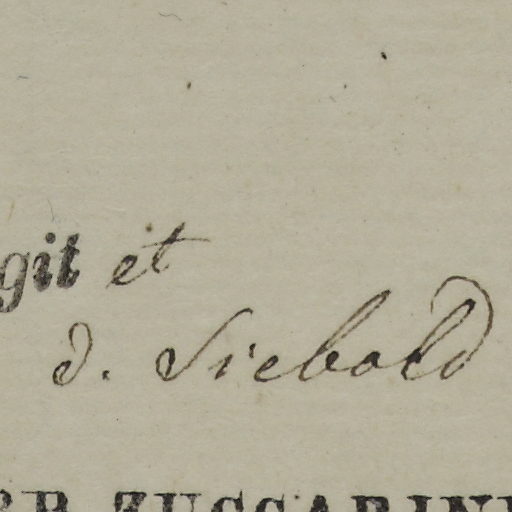 git et
d. Siebold
ZUCCARINI